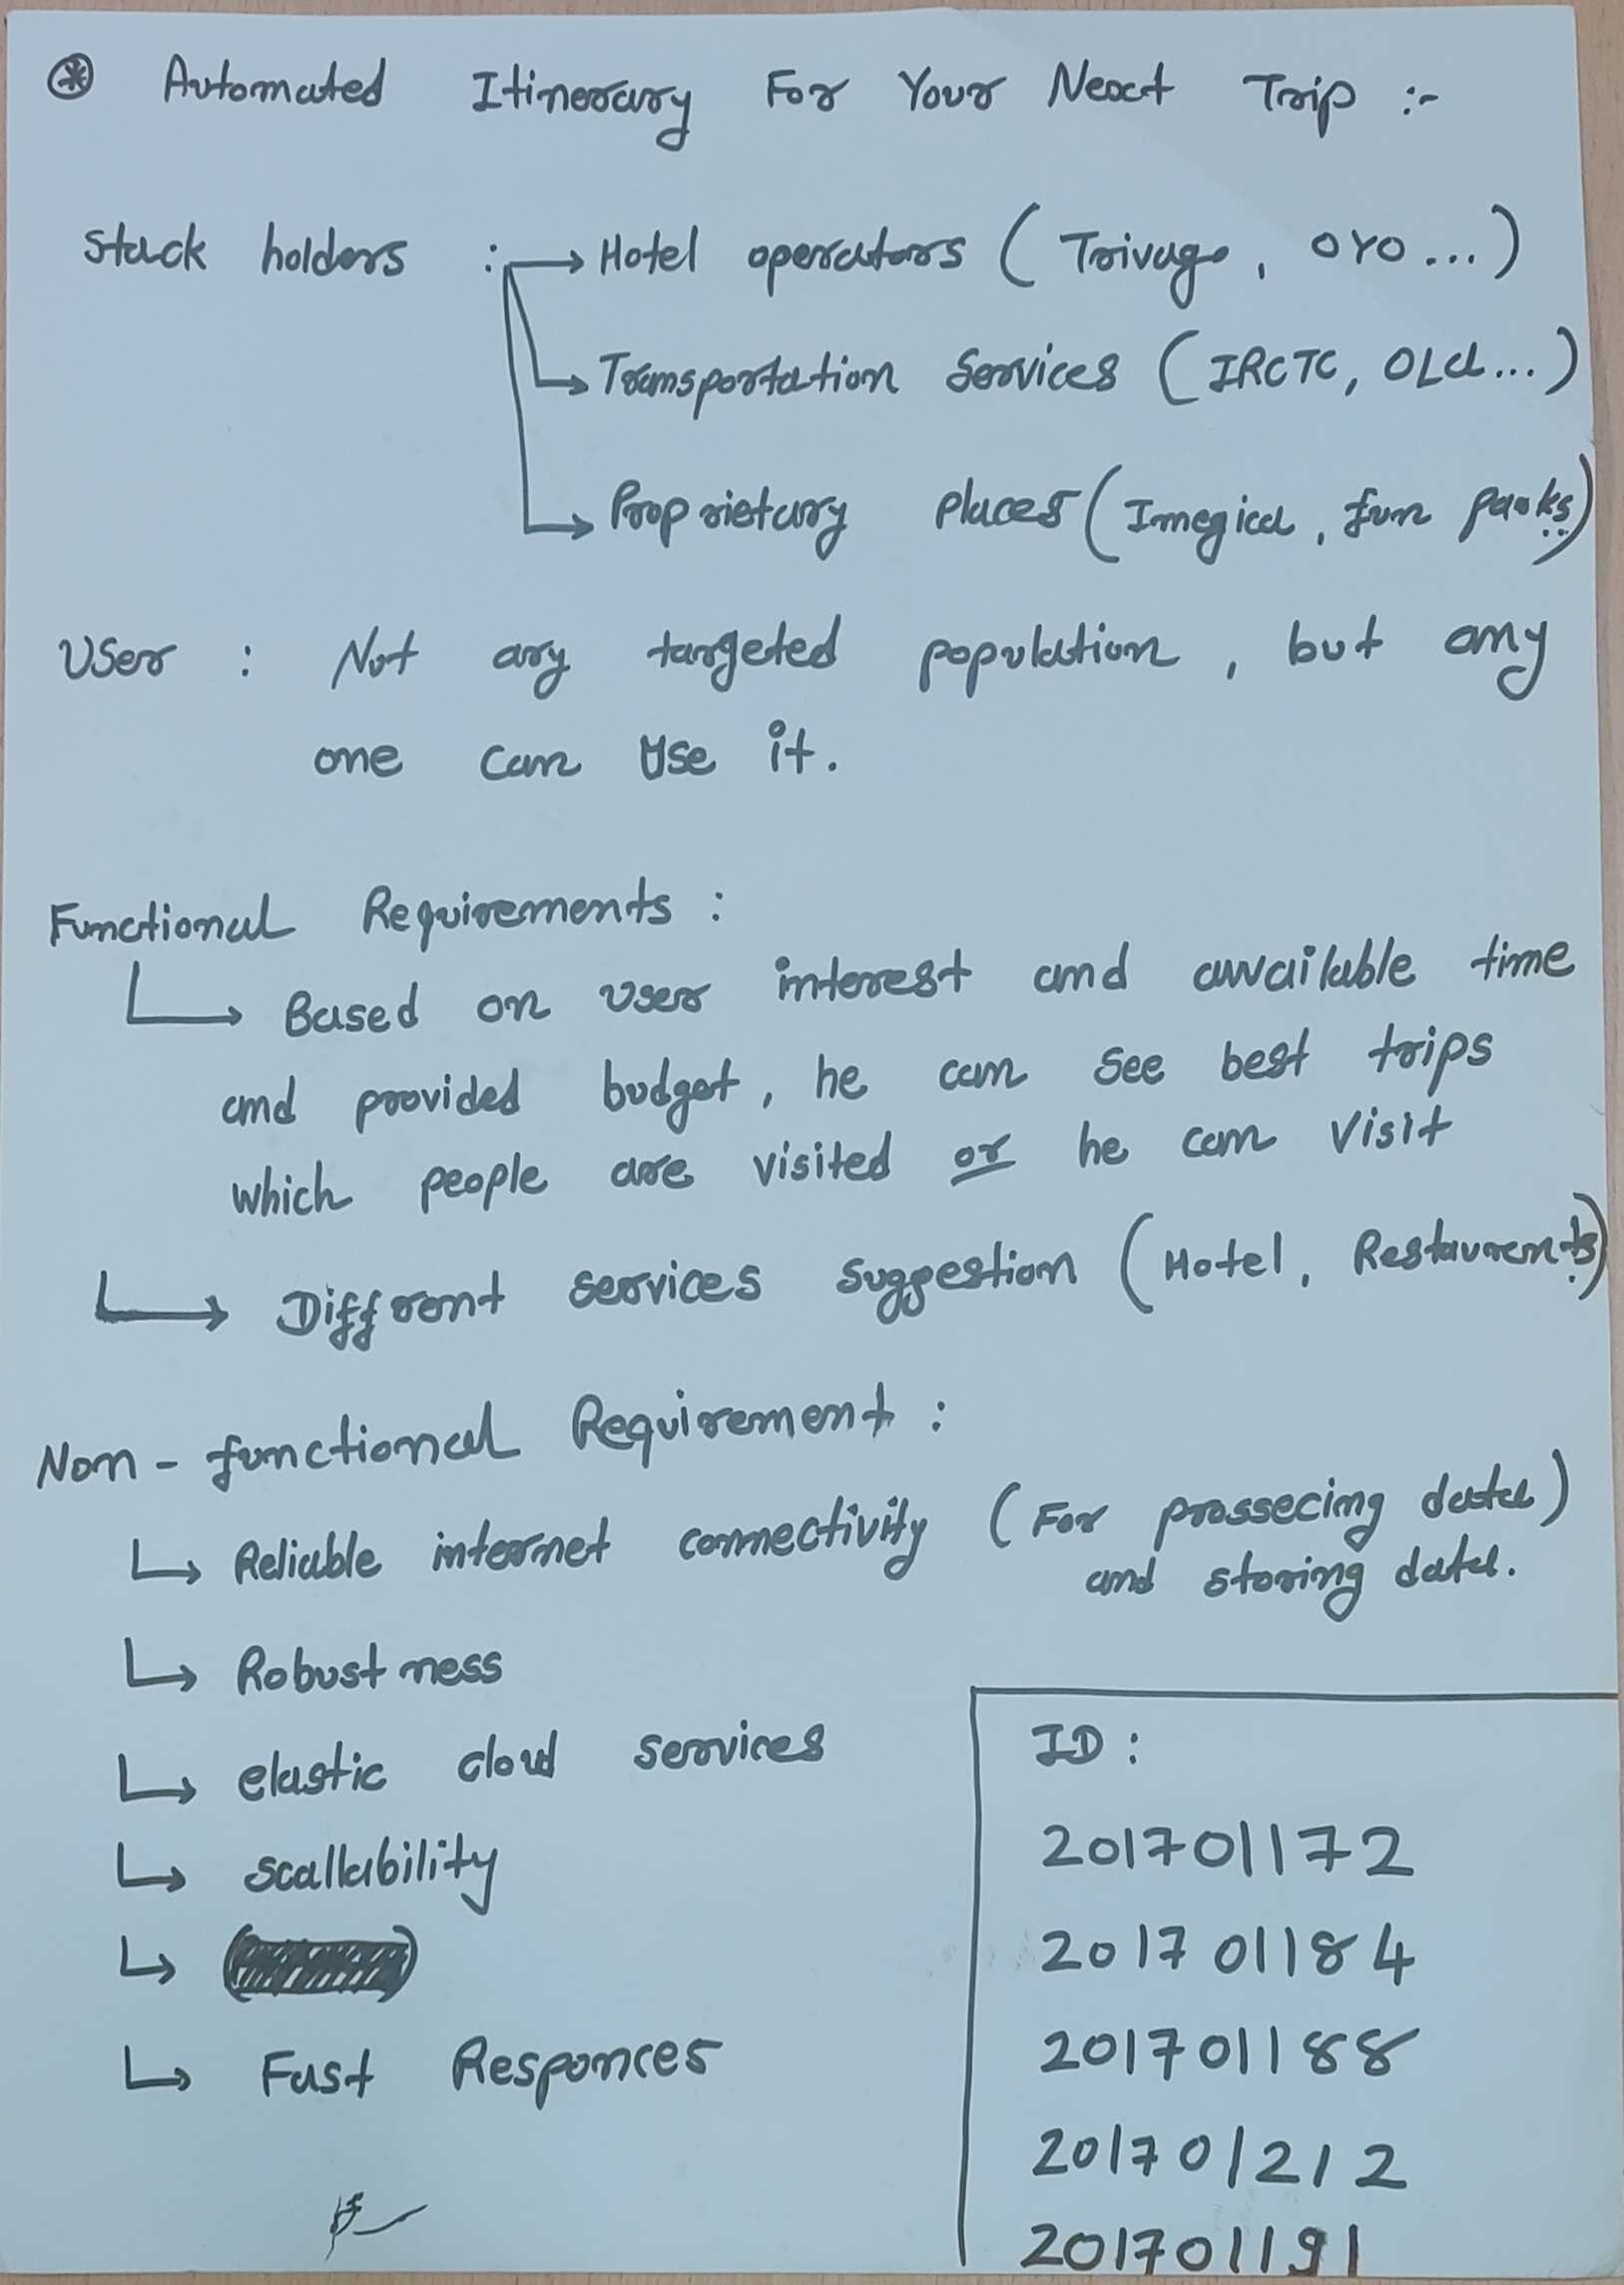 Automated Itinerary For Your Next Trip :-
Stack holders : → Hotel operators ( Trivago, OYO ... )
→ Transportation Services ( IRCTC, OLA ... )
→ Proprietary places ( Imegica, fun parks .. )
User : Not any targeted population, but any
one can use it.
Functional Requirements :
→ Based on user interest and available time
and provided budget, he can see best trips
which people are visited or he can visit
→ Diffrent services suggestion ( Hotel, Restaurents .. )
Non - functional Requirement :
→ Reliable internet connectivity ( For prossecing data )
and storing data.
→ Robustness
→ elastic cloud services
→ scallability
→ Fast Responces
ID :
201701172
201701184
201701188
201701212
201701191